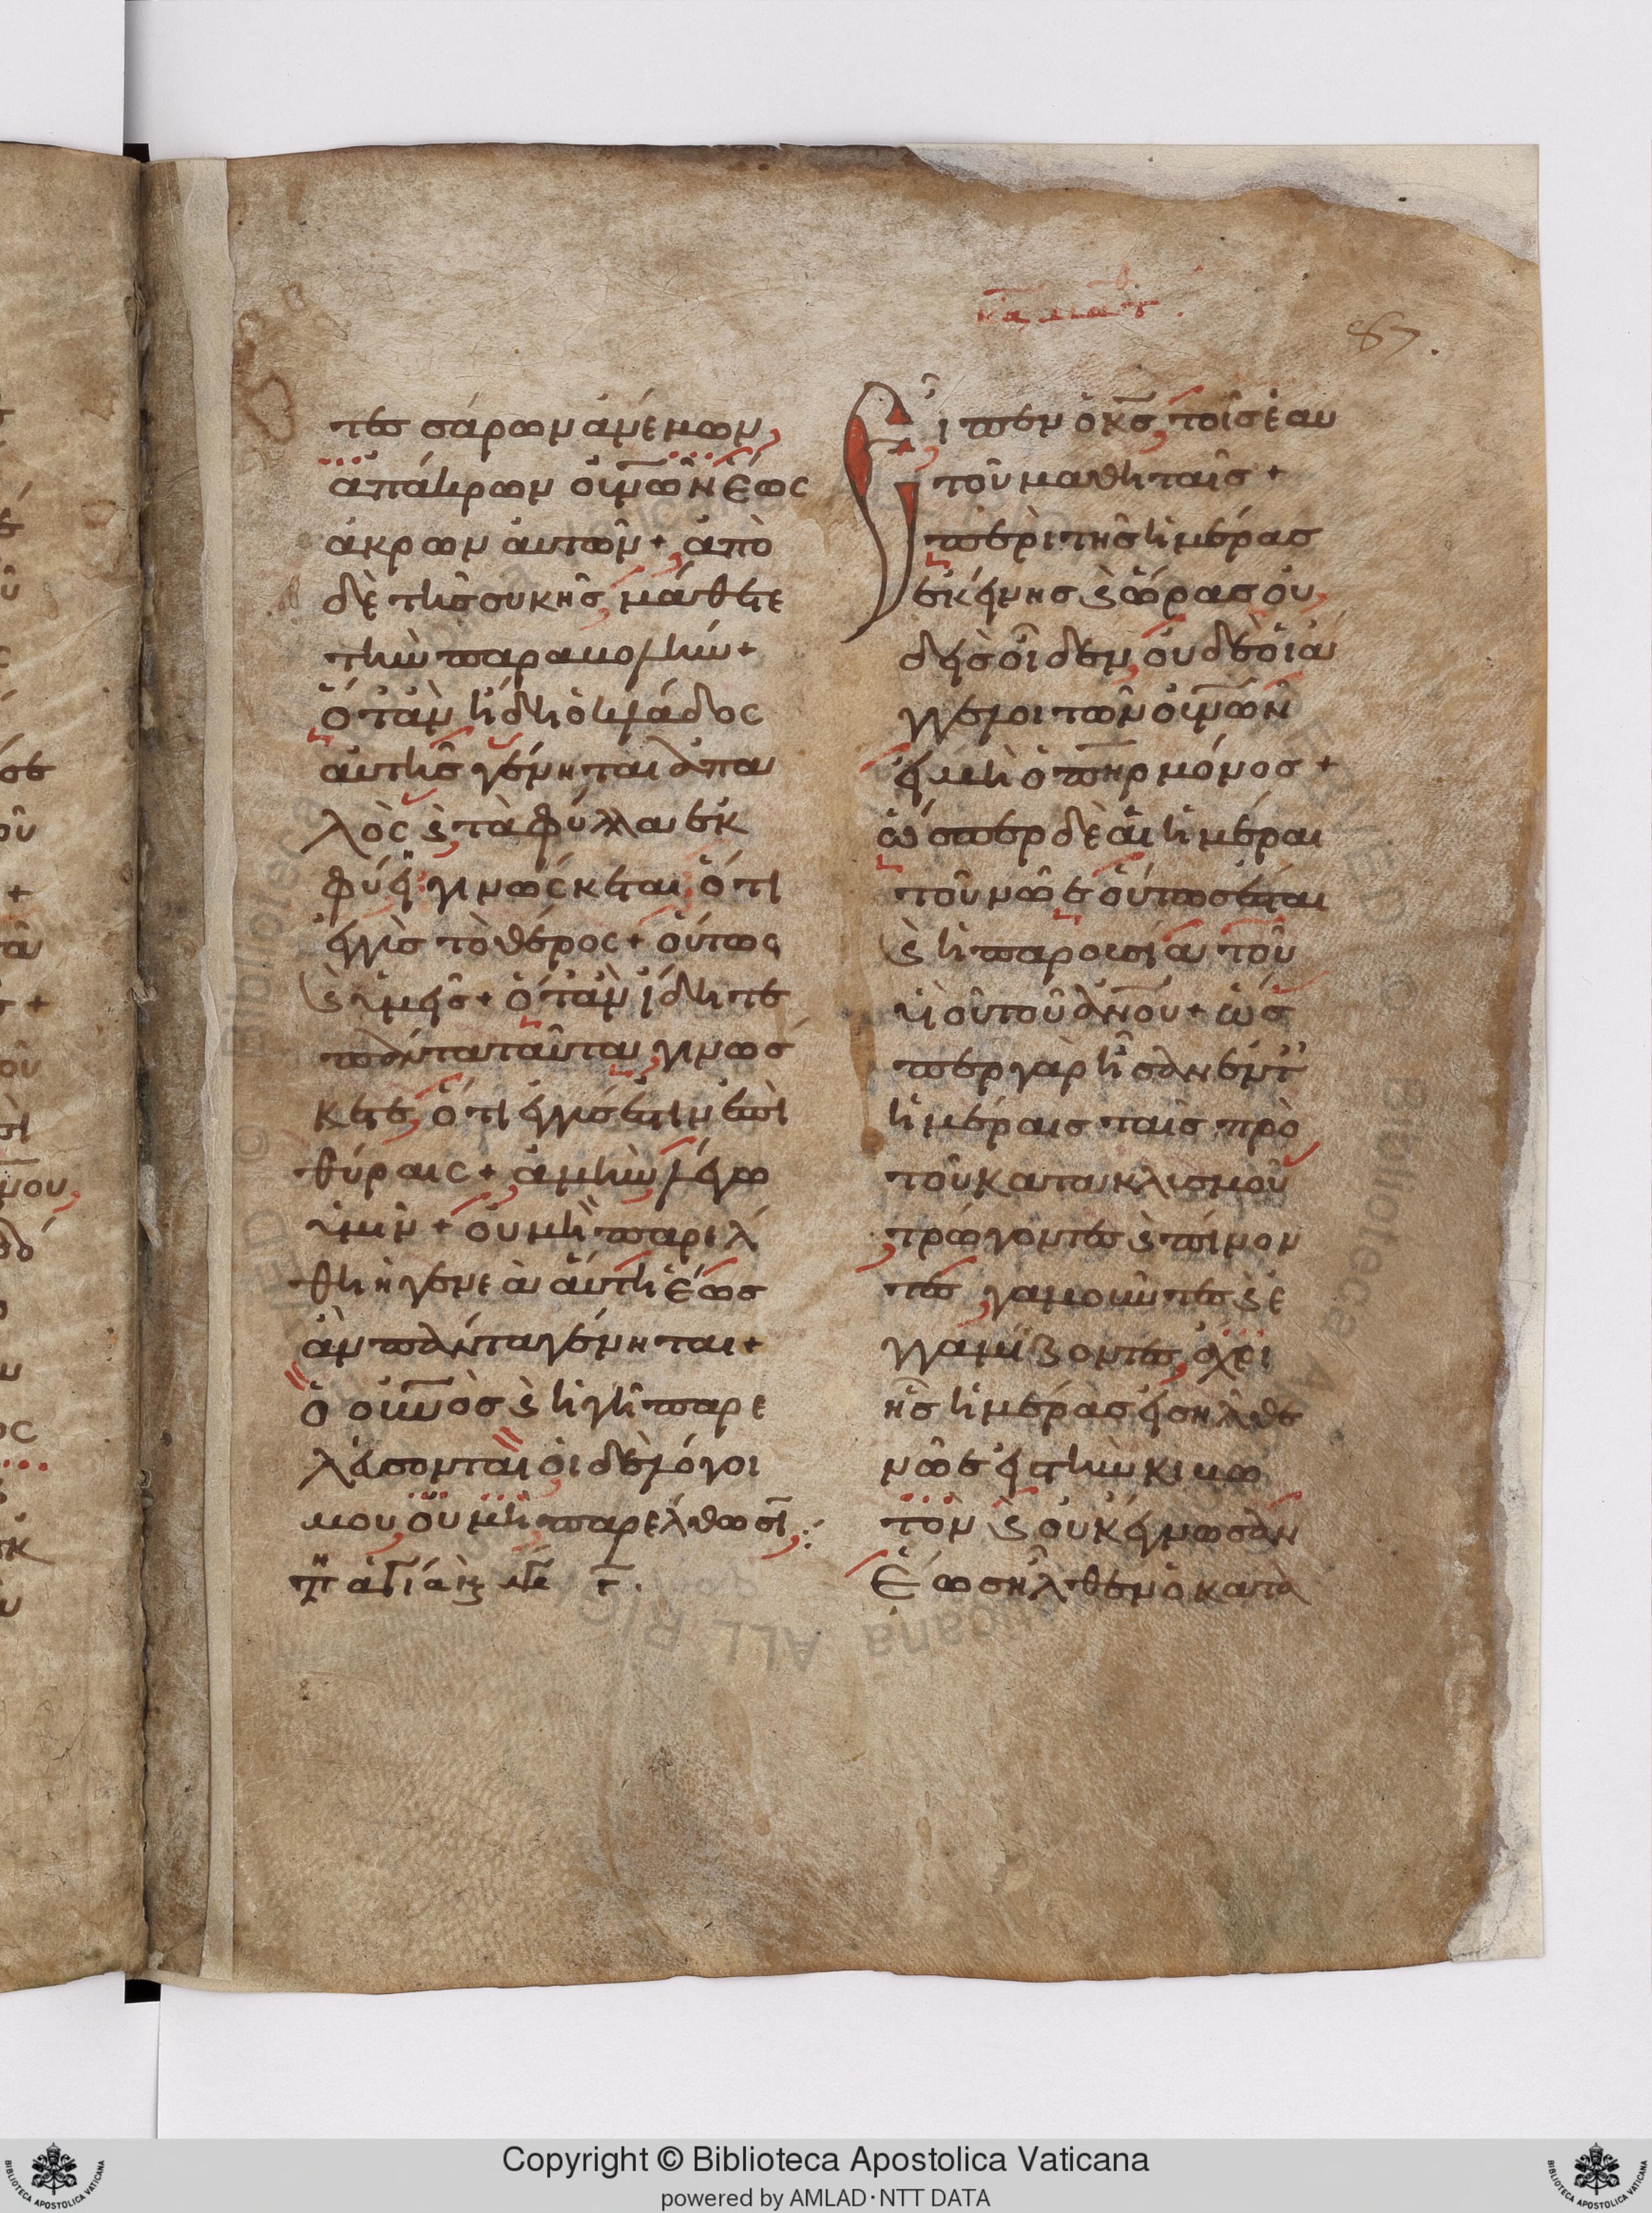 κατα ματθ
87.
τεσσάρων ἀνέμων,
ἀπάκρων οὐνῶν ἕως
ἄκρων ἀυτῶν + ἀπὸ
δὲ τῆς συκῆς, μάθετε
τὴν παραβολήν +
ὅταν ἤδη ὁ κλάδος
ἀυτῆς γένηται ἁπα
λὸς ϗ τὰ φύλλα ἐκ
φύει γινώσκεται, ὅτι
ἐγγὺς τὸ θέρος + ὅυτως
ϗ ὑμεῖς + ὅταν ἴδητε
πάντα ταῦτα γινώσ
κετε, ὅτι ἐγγύς ἐστιν ἐπὶ
θύραις + ἀμὴν λέγω
ὑμῖν + οὐ μὴ παρελ
θη ἡ γενεὰ ἅυτη ἕως
ἂν πάντα γένηται +
ὁ οὐνὸς ϗ ἡ γῆ παρε
λέυσονται, οἱ δὲ λόγοι
μου, οὐ μὴ παρέλθωσῖ,:
Εἶπεν ὁ κς, τοῖς ἑαυ
τοῦ μαθηταῖς +
περὶ τῆς ἡμέρας
ἐκείνης ϗ ὥρας ὀυ
δεὶς οἶδεν, ὀυδὲ ὁι ἄ
γγελοι τῶν οὐνῶν
εἰ μὴ ὁ πηρ μόνος +
ὥσπερ δὲ ἁι ἡμέραι
τοῦ νῶε ὅυτως ἔσται
ϗ ἡ παρουσία τοῦ
ὑιοῦ τοῦ ἀνου + ὡσ
περ γὰρ ἦσαν ἐν τ
ἡμέραις ταῖς πρὸ
τοῦ κατακλισμοῦ
τρώγοντες ϗ πίνον
τες, γαμουντες ϗ ἐ
γγαμίζοντες, ἄχρι
ἧς ἡμέρας ἐισῆλθε
νῶε ἐις τὴν κιβω
τὸν ϗ ὀυκ ἔγνωσαν
ἕως ἦλθεν ὁ κατα